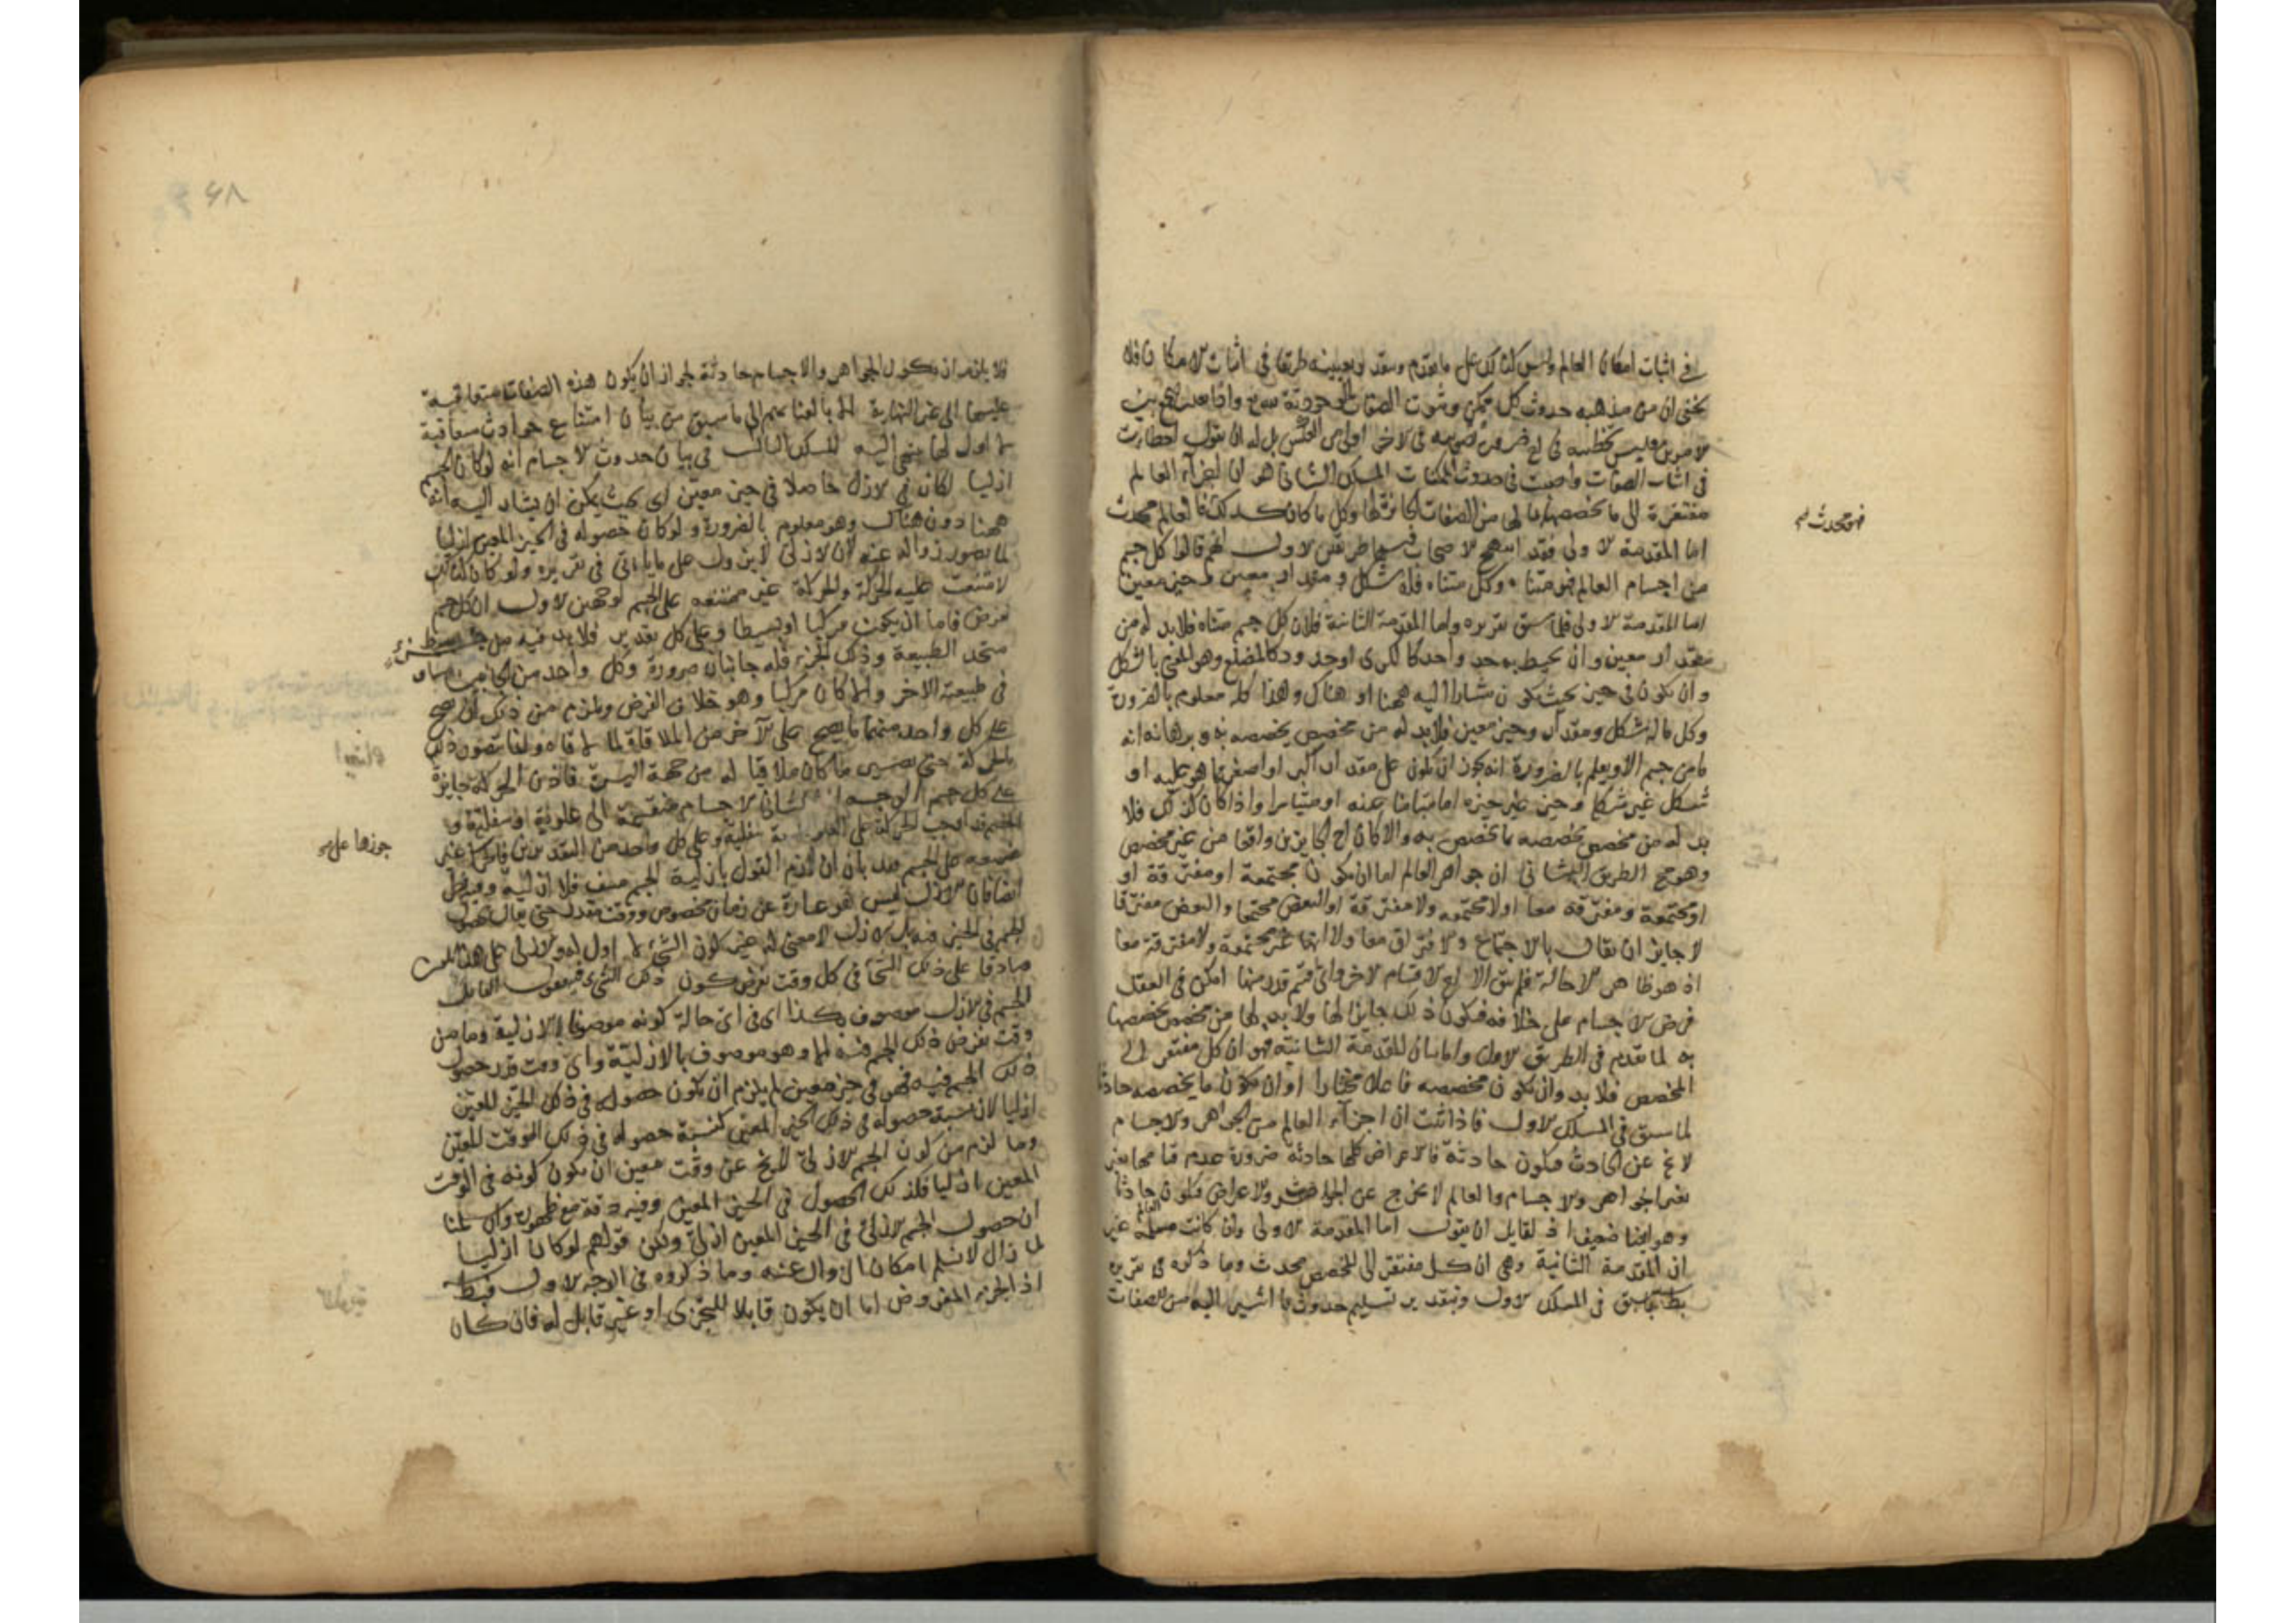 في اثبات امكان العالم وليس كذلك على ما تقدم وبعينه طريقا في اثبات الامكان فلا
يخفى ان من مذهبه حدوث كل ممكن وثبوت الصفات
بل له ان يقول اخطأت
في اثبات الصفات واصبت في حدوث الممكنات المسلك الثاني هو ان اجزاء العالم
مفتقرة الى ما يخصصها بما لها من الصفات الجائزة لها وكل ما كان كذلك فالعالم محدث
فهو محدث صح
اما المقدمة الاولى فقد انتهج الاصحاب فيها طريقين الاول انهم قالوا كل جسم
من اجسام العالم فهو متناه وكل متناه فله شكل ومقدار معين وحيز معين
اما المقدمة الاولى فلما سبق تقريره واما المقدمة الثانية فلان كل جسم متناه فلابد له من
مقدار معين وان يحيط به حد واحد كالكرى او حدود كالمضلع وهو المعنى بالشكل
وان يكون في حيز بحيث يكون مشارا اليه ههنا او هناك وهذا كله معلوم بالضرورة
وكل ما له شكل ومقدار وحيز معين فلابد له من مخصص يخصصه به وبرهانه انه
ما من جسم الا ويعلم بالضرورة انه يجوز ان يكون على مقدار اكبر او اصغر مما هو عليه او
شكل غير شكله وحيز غير حيزه اما متيامنا عنه او متياسرا واذا كان كذلك فلا
بد له من مخصص يخصصه بما تخصص به والا كان احد الجايزين واقعا من غير مخصص
وهو مح الطريق الثاني ان جواهر العالم اما ان تكون مجتمعة او مفترقة او
او مجتمعة ومفترقة معا او لا مجتمعة ولا مفترقة او البعض مجتمعا والبعض مفترقا
لا جايز ان يقال بالاجتماع والافتراق معا ولا انها غير مجتمعة ولا مفترقة معا
اذ هو ظاهر الاحالة فلم يبق الا احد الاقسام الاخر واى قسم قدر منها امكن في العقل
فرض الاجسام على خلافه فيكون ذلك جايزا لها ولابد لها من مخصص يخصصها
به لما تقدم في الطريق الاول واما بيان المقدمة الثانية فهو ان كل مفتقر الى
المخصص فلابد وان يكون مخصصه فاعلا مختارا وان يكون ما يخصصه حادثا
لما سبق في المسلك الاول فاذا ثبت ان اجزاء العالم من الجواهر والاجسام
لا تخ عن الحادث فتكون حادثة فالاعراض كلها حادثة ضرورة عدم قيامها بغير
الجواهر والاجسام والعالم لا يخرج عن الجواهر والاعراض فيكون العالم حادثا
وهو ايضا ضعيف اذ لقايل ان يقول اما المقدمة الاولى وان كانت مسلمة غير
ان المقدمة الثانية وهي ان كل مفتقر الى المخصص محدث وما ذكره في تقريره
بط بما سبق في المسلك الاول وبتقدير تسليم حدوث ما اشير اليه من الصفات
۶۸
فلا يلزم ان يكون الجواهر والاجسام حادثة لجواز ان يكون هذه الصفات متعاقبة
عليها الى غير النهاية الا بالتفاتهم الى ما سبق من بيان امتناع حوادث متعاقبة
لا اول لها ينتهى اليه المسلك الثالث في بيان حدوث الاجسام انه لو كان الجسم
ازليا لكان في الازل حاصلا في حيز معين اى بحيث يمكن ان يشار اليه انه
ههنا دون هناك وهو معلوم بالضرورة ولو كان حصوله في الحيز المعين ازليا
لما تصور زواله عنه لان الازلى لا يزول على ما ياتى في تقريره ولو كان كذلك
لامتنعت عليه الحركة والحركة غير ممتنعة على الجسم لوجهين الاول ان كل جسم
نفرض فاما ان يكون مركبا او بسيطا وعلى كل تقدير فلابد فيه من جزء
متحد الطبيعة وذلك الجزء فله جانبان ضرورة وكل واحد من الجانبين مساو
في طبيعته الاخر والا كان مركبا وهو خلاف الفرض ويلزم من ذلك ان يصح
على كل واحد منهما ما يصح على الاخر من الملاقاة لما لاقاه وانما يتصور ذلك
بالحركة حتى يصير ما كان ملاقيا له من جهة اليسرة فاذن الحركة جايزة
على كل جسم الوجه الثانى الاجسام منقسمة الى علوية وسفلية
وعلى كل واحد من التقديرين فالحركة غير
جوزها على صح
ممتنعة على الجسم
ايضا فان الازل ليس هو عبارة عن زمان مخصوص ووقت مقدر حتى يقال بحصول
الجسم في الحيز فيه بل الازل لا معنى له غير كون الشئ لا اول له
صادقا على ذلك الشئ في كل وقت نفرض كون ذلك الشئ فيه فقول القايل
الجسم في الازل موصوف بكذا اى في اى حالة كونه موصوفا بالازلية وما من
وقت نفرض ذلك الجسم فيه الا وهو موصوف بالازلية واى وقت قدر حصول
ذلك الجسم فيه في حيز معين لم يلزم ان يكون حصوله في ذلك الحيز المعين
ازليا لان نسبة حصوله في ذلك الحيز المعين كنسبة حصوله في ذلك الوقت المعين
وما لزم من كون الجسم الازلى لا يخ عن وقت معين ان يكون كونه في الوقت
المعين ازليا فكذلك الحصول في الحيز المعين وفيه دقة مع ظهوره وان سلمنا
ان حصول الجسم الازلى في الحيز المعين ازلى ولكن قولهم لو كان ازليا
لما زال لا نسلم امكان الزوال عنه وما ذكروه في الوجه الاول فبط
اذ الجزء المفروض اما ان يكون قابلا للتجزى او غير قابل له فان كان